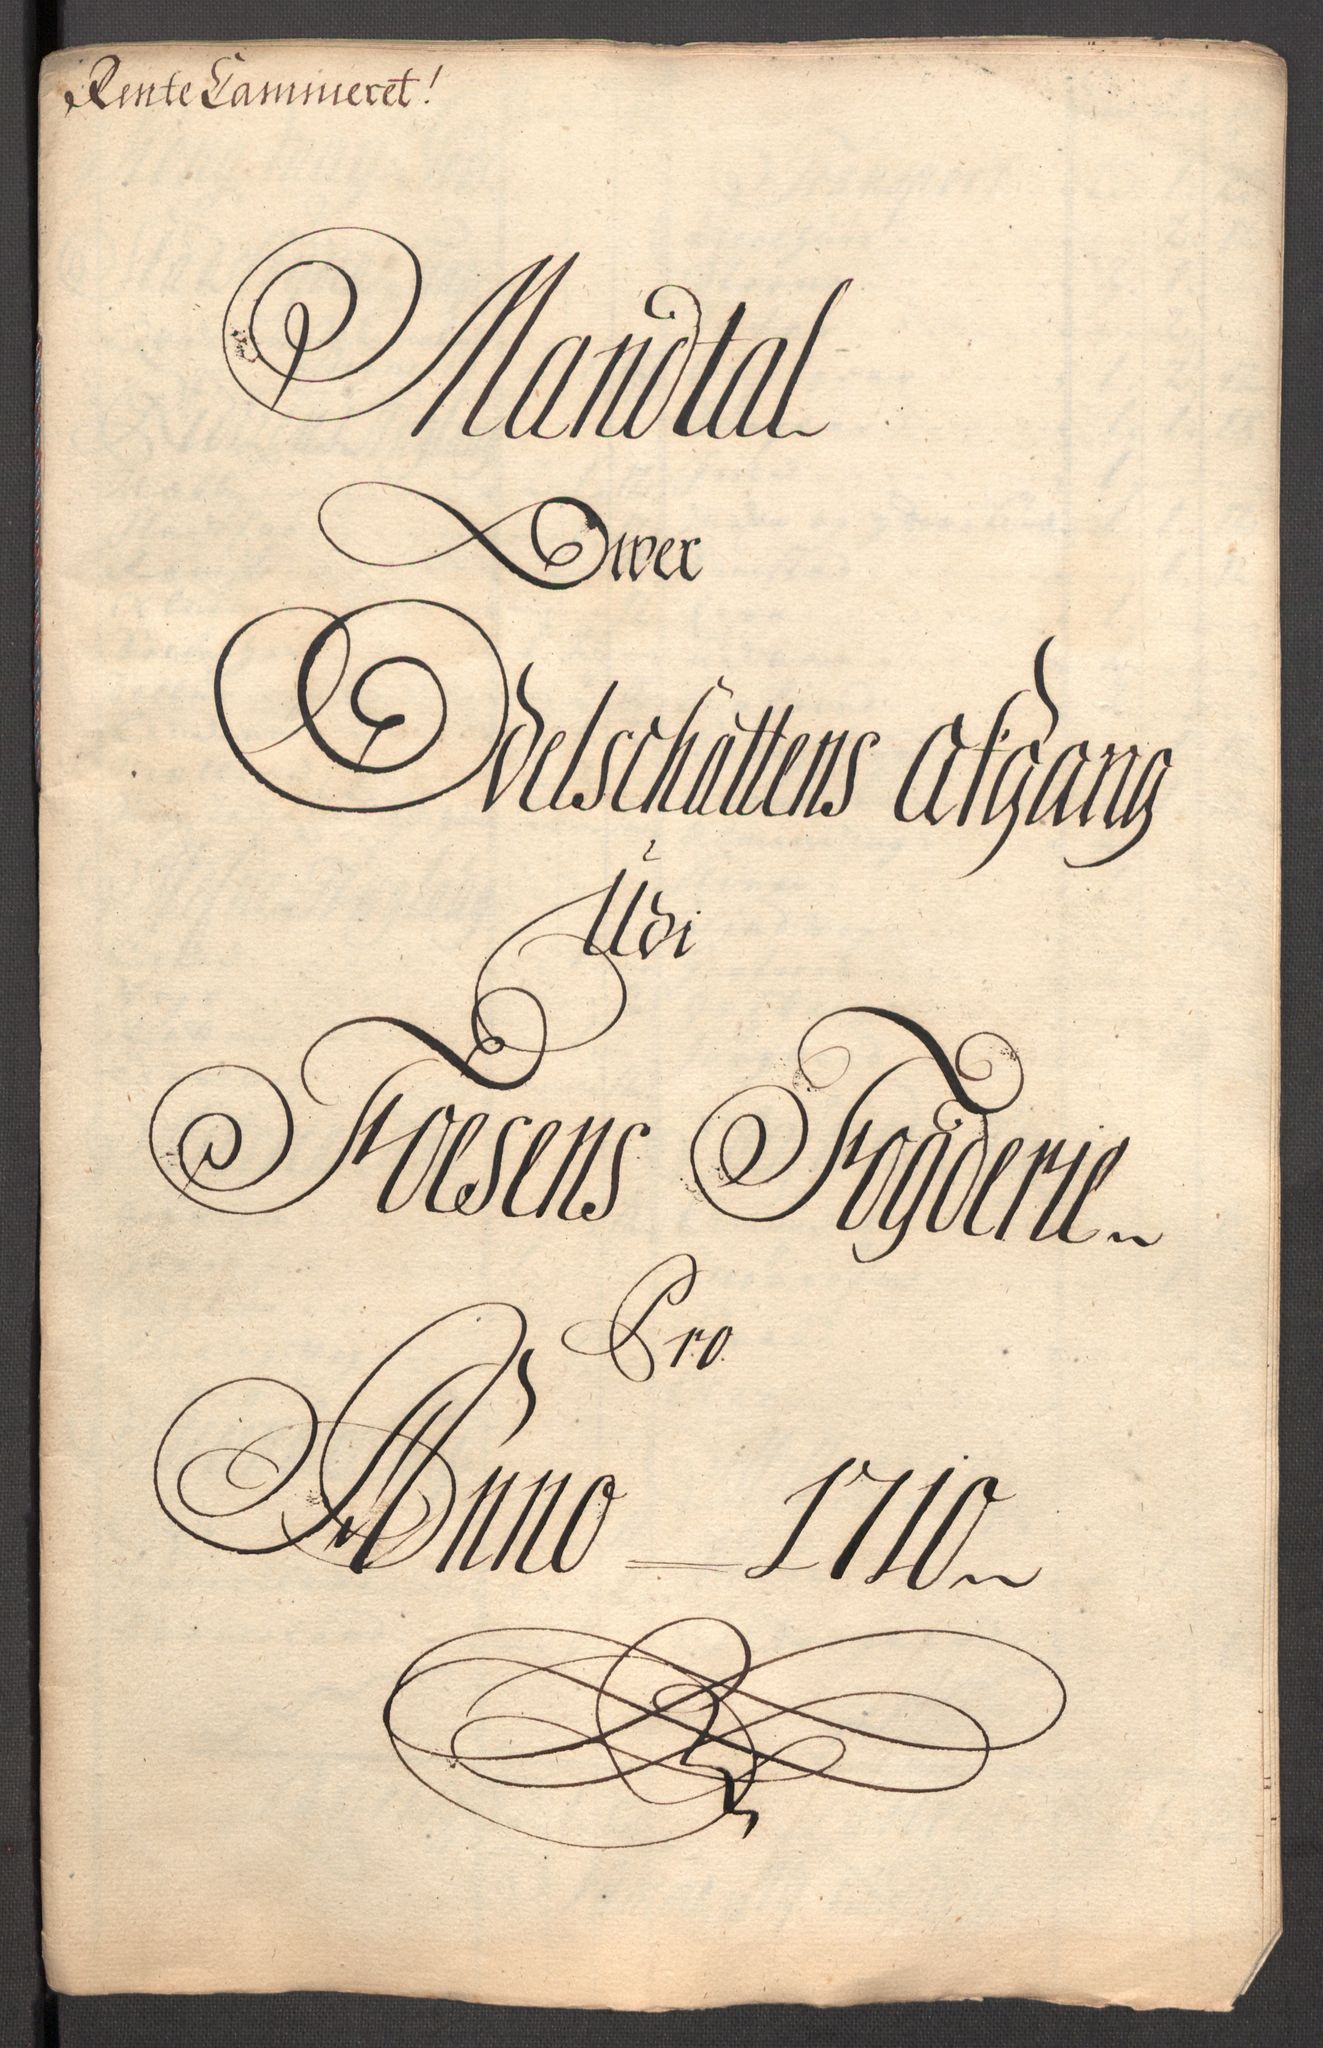 Rente Cammeret!
Mandtal
Ower
Odelschattens Afgang
Udi
Foesens Fogderie
Pro
Anno 1710